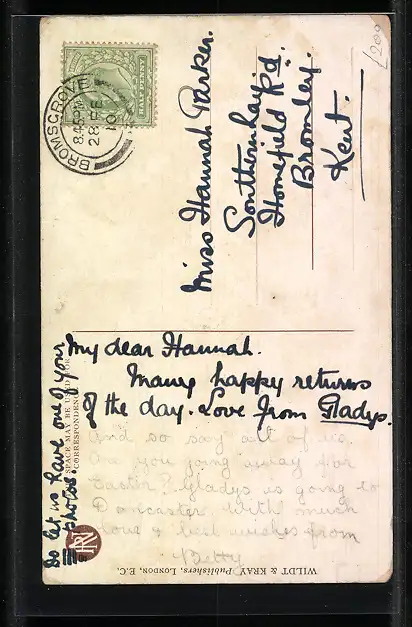 BROMSGROVE
8.45PM
28 FE
10
PENNY
Miss Hannah Parker.
Southernhay.
Homefield Rd.
Bromley.
Kent.
£209
My dear Hannah.
Many happy returns
of the day. Love from Gladys.
And so say all of us.
Are you going away for
Easter? Gladys is going to
Doncaster. With much
love & best wishes from
Betty
Do let us have one of your
photos.
SPACE MAY BE USED FOR
CORRESPONDENCE
WILDT & KRAY Publishers, LONDON, E.C.